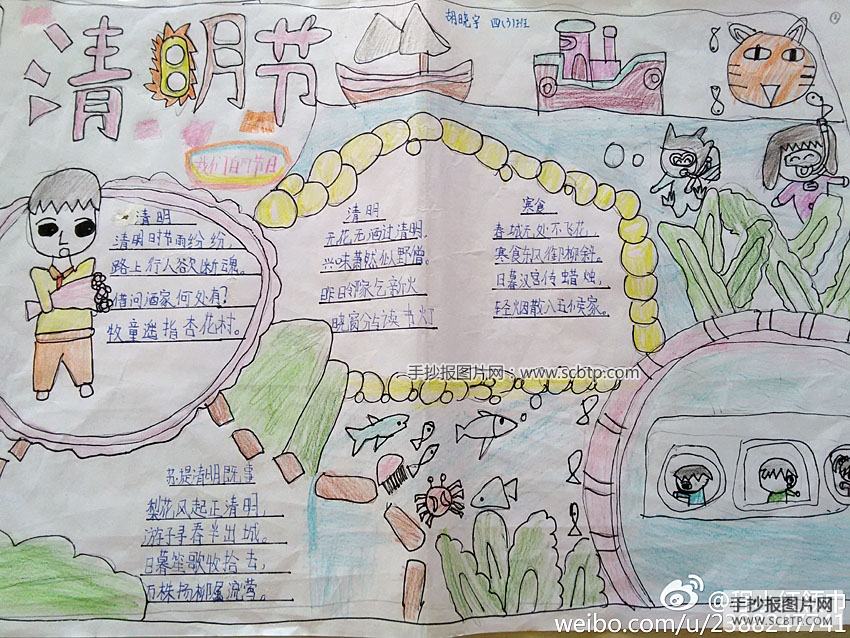 清明节
胡晓宇 四(3)班
我们的节日
清明
清明时节雨纷纷,
路上行人欲断魂。
借问酒家何处有?
牧童遥指杏花村。
清明
无花无酒过清明,
兴味萧然似野僧。
昨日邻家乞新火
晓窗分与读书灯
寒食
春城无处不飞花,
寒食东风御柳斜。
日暮汉宫传蜡烛,
轻烟散入五侯家。
手抄报图片网:www.scbtp.com
苏堤清明既事
梨花风起正清明,
游子寻春半出城。
日暮笙歌收拾去,
万株杨柳属流莺。
手抄报图片网
WWW.SCBTP.COM
手抄报图片网
WWW.SCBTP.COM